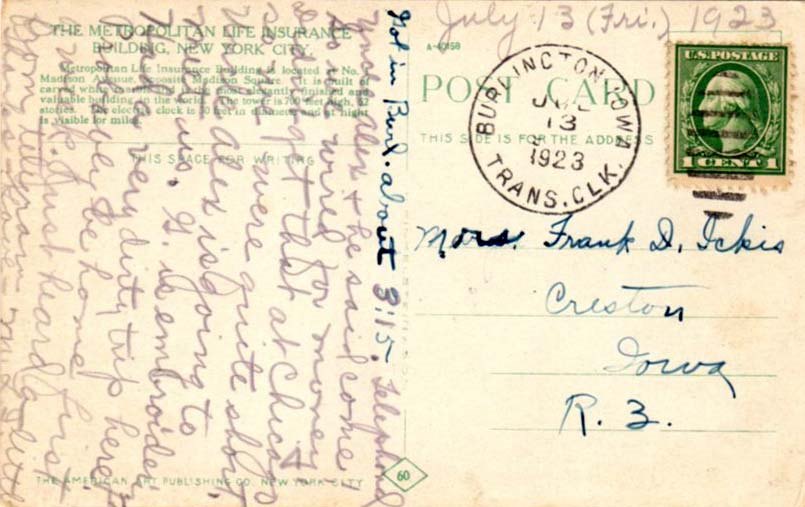 July 13 (Fri.) 1923
THE METROPOLITAN LIFE INSURANCE
BUILDING, NEW YORK CITY.
Metropolitan Life Insurance Building is located at No. 1
Madison Avenue, opposite Madison Square. It is built of
carved white marble and is the most elegantly finished and
valuable building in the world. The tower is 700 feet high, 52
stories. The electric clock is 30 feet in diameter and at night
is visible for miles.
THIS SPACE FOR WRITING
A-40158
POST CARD
THIS SIDE IS FOR THE ADDRESS
BURLINGTON, IOWA
JUL
13
1923
TRANS. CLK.
U.S. POSTAGE
1 CENT 1
Mrs. Frank D. Ickis
Creston
Iowa
R. 3.
Got in Burl. about 3:15. Telephoned
alex & he said come
on wired for money
get that at Chicago
We were quite short
alex is going to
meet us. G. is embroider
very dirty trip here
be home first
Just heard a little
THE AMERICAN ART PUBLISHING CO. NEW YORK CITY
60